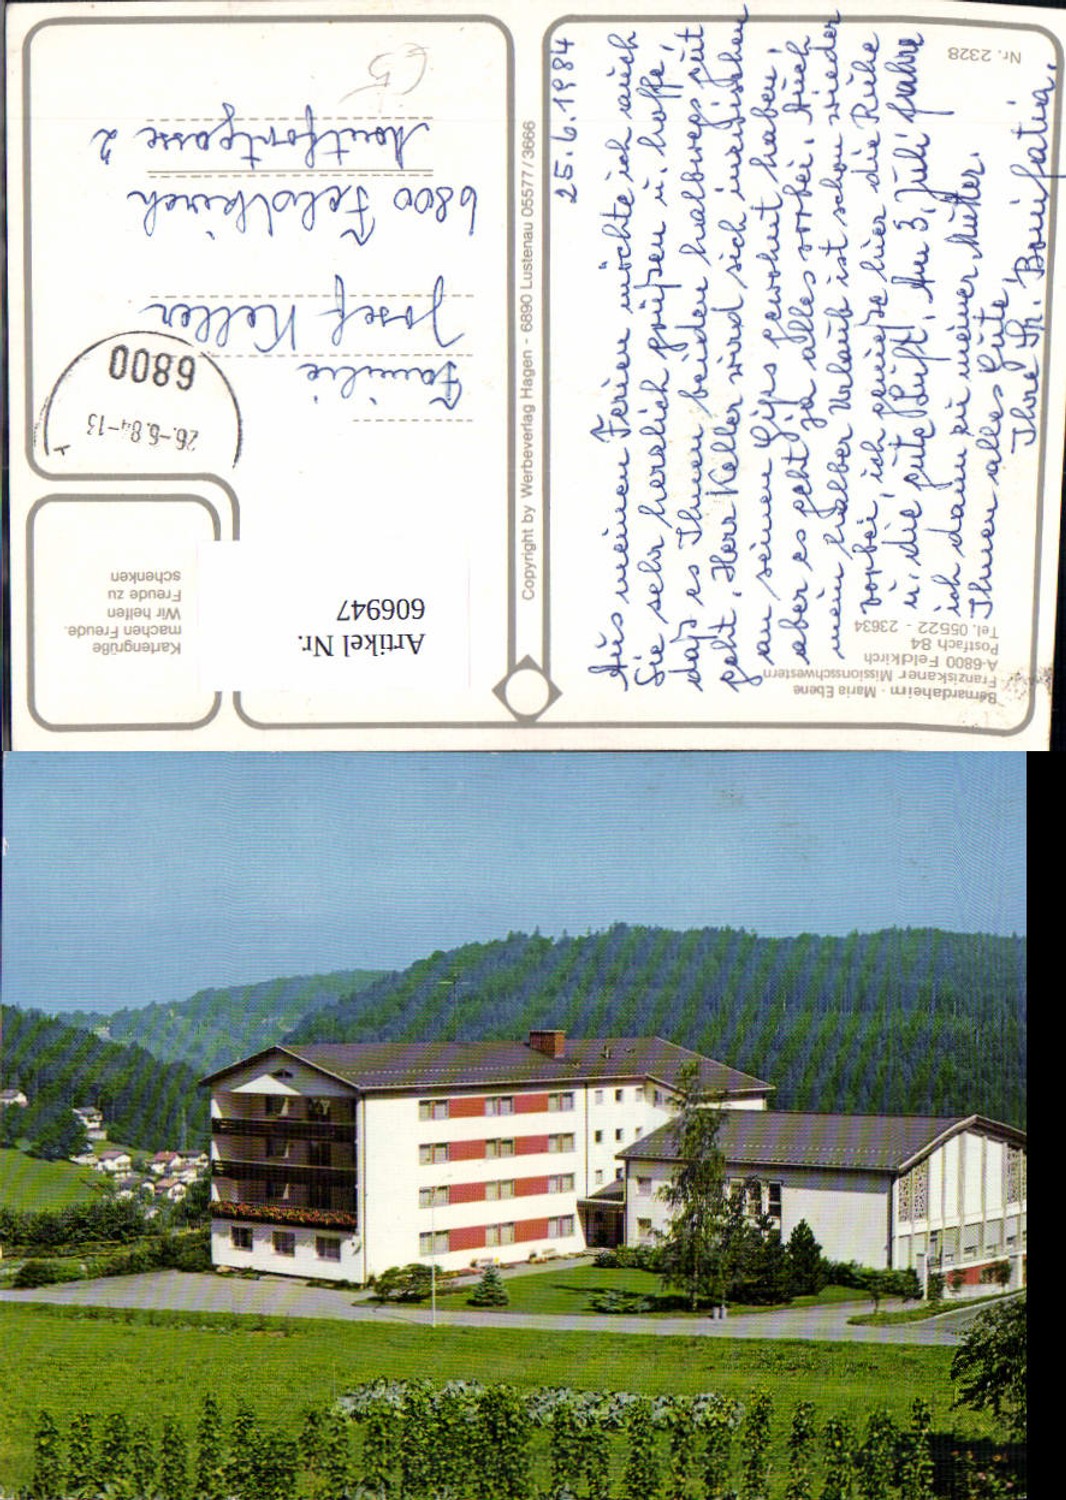 Bernardaheim - Maria Ebene
Franziskaner Missionsschwestern
A-6800 Feldkirch
Postfach 84
Tel. 05522 - 23634
Nr. 2328
25.6.1984
Aus meinen Ferien möchte ich auch
Sie sehr herzlich grüßen u. hoffe,
daß es Ihnen beiden halbwegs gut
geht. Herr Keller wird sich inzwischen
an seinen Gips gewöhnt haben,
aber es geht ja alles vorbei. Auch
mein halber Urlaub ist schon wieder
vorbei, ich genieße hier die Ruhe
u. die gute Luft. Am 3. Juli fahre
ich dann zu meiner Mutter.
Ihnen alles Gute,
Ihre Sr. Bonifatia.
Copyright by Werbeverlag Hagen - 6890 Lustenau 05577/3666
6800
26.-6.84-13
Familie
Josef Keller
6800 Feldkirch
Montfortgasse 2
Artikel Nr.
606947
Kartengrüße
machen Freude.
Wir helfen
Freude zu
schenken